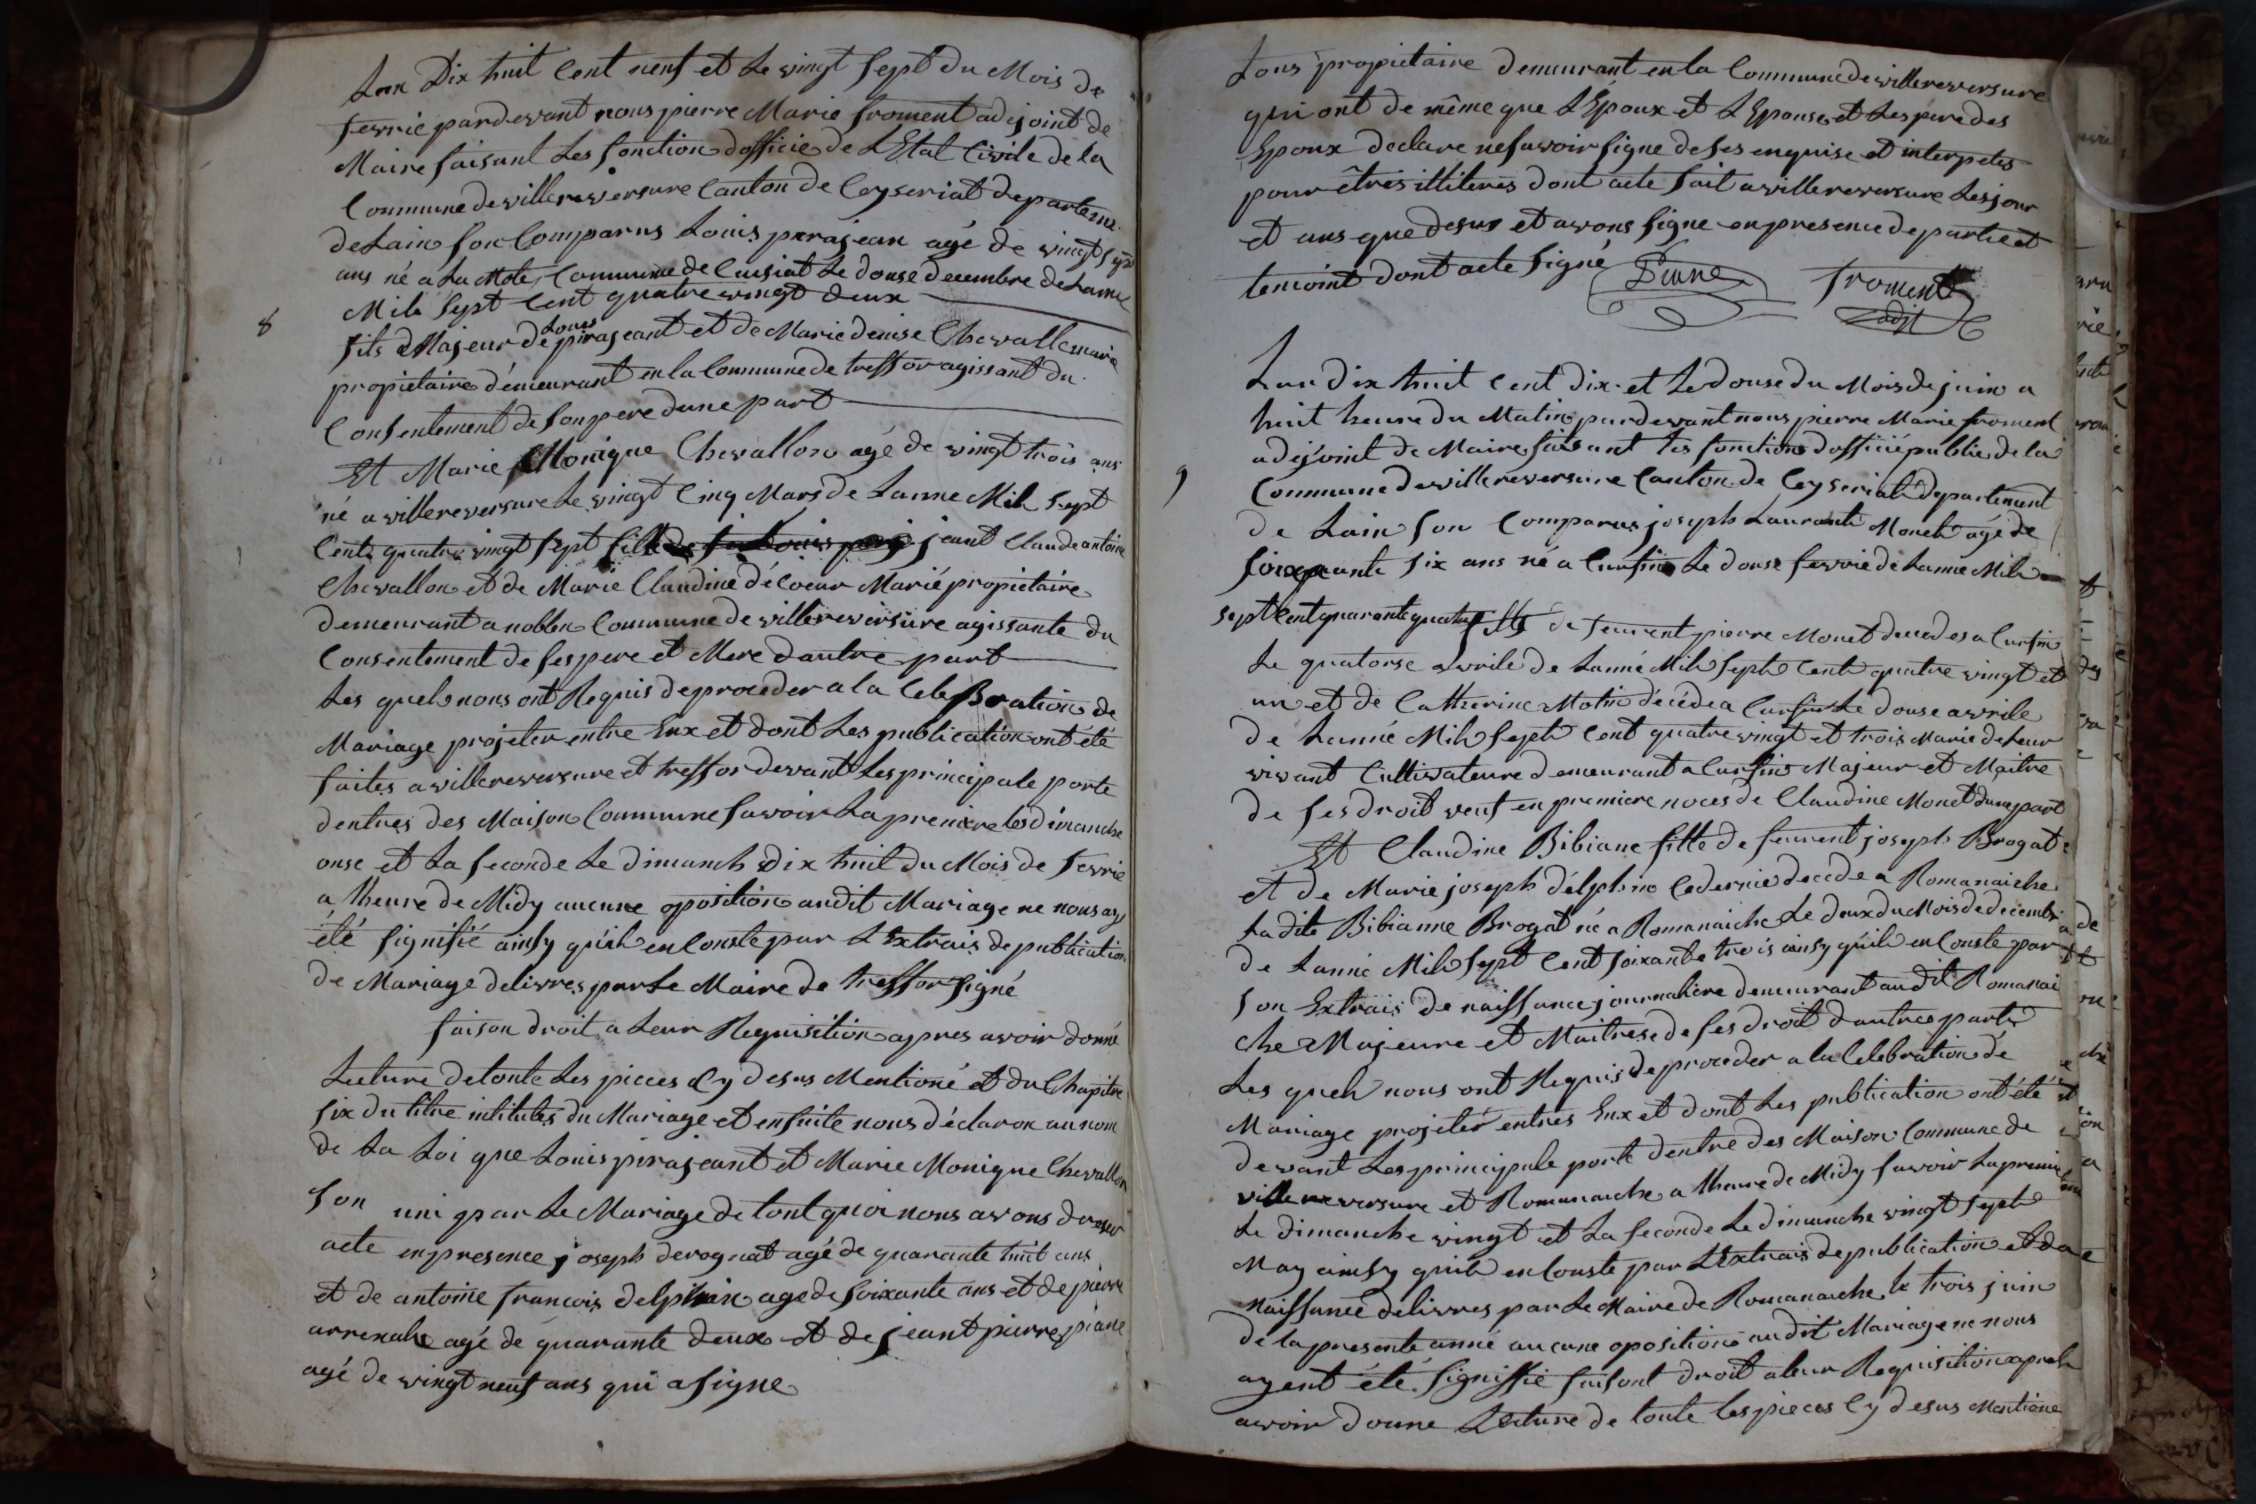 Lan Dix huit Cent neuf et Le vingt sept du Mois de
fevrié pardevant nous pierre Marie froment adejoint de
Maire faisant Les fonction dofficié de LEtat Civile de la
Commune de villereversure Canton de Ceyseriat departeme.
de Lain son Comparus Louis parajean agé de vingt sept
ans né a La Mote Commune de Cuisiat Le douse decembre de Lanné
Mile sept Cent quatre vingt deux
8
fils Majeur de Louis pirajeant et de Marie denise Chevallemarie
propietaire démeurant en la Commune de treffor agissant du
Consentement de son pere dune part
Et Marie Monique Chevallon agé de vingt trois ans
né a villereversure Le vingt Cinq Mars de Lanne Mil sept
Cents quatre vingt sept fille de feu Louis jeant Claude antoine
Chevallon et de Marie Claudine décoeur Marié propietaire
demeurant a noblen Commune de villereversure agissante du
Consentement de ses pere et Mere dautre part
Les quels nous ont Requis de proceder a la Celebration de
Mariage projeter entre Eux et dont Les publication ont été
faites a villereversure et treffor devant Les principale porte
dentres des Maison Commune savoir La premiere les dimanche
onse et La seconde Le dimanch dix huit du Mois de fevrié
a lheure de Midy aucune oposition audit Mariage ne nous ay
été signifié ainsy quil en Conste par LExtrais de publication
de Mariage delivres par Le Maire de treffor signé
faison droit a Leur Requisition apres avoir donné
Lecture de toute Les pieces Cy desus Mentioné et du Chapitre
six du titre intitules du Mariage et ensuite nous déclaron au nom
de La Loi que Louis pirajeant et Marie Monique Chevallon
son uni par Le Mariage de tout quoi nous avons dresser
acte en presence joseph derognat agé de quarante huit ans
et de antoine francois delphin age de soixante ans et de pierre
agé de quarante deux et de jeant pierre piane
agé de vingt neuf ans qui a signe
tous propietaire demeurant en la Commune de villereversure
qui ont de même que LEpoux et LEpouse et Les pere des
Epoux declare ne savoir signe de ses enquise et interpeles
pour êtres illiteres dont acte fait a villereversure Les jour
et ans que desus et avons signe en presence de partie et
temoint dont acte signé Piane froment
adjt
Lan dix huit Cent dix et Le douse du Mois de juin a
huit heure du Matin pardevant nous pierre Marie froment
adejoint de Maire faisant les fonction dofficié public de la
9
Commune de villereversure Canton de Ceyseriat departement
de Lain son Comparus joseph Laurant Monet agé de
soixante six ans né a Cursin Le douse fevrié de Lanne Mil
sept Cent quarante quatre fils de feu pierre Monet decedes a Cursin
Le quatorse avrile de Lanné Mil sept Cent quatre vingt et
un et de Catherine Motin décéde a Cursin Le douse avrile
de Lannée Mil sept Cent quatre vingt et trois Marie de Leur
vivant Cultivateure demeurant a Cursin Majeur et Maitre
de ses droit veuf en premiere noces de Claudine Monet dune part
Et Claudine Bibiane fille de feu joseph Brogat
et de Marie joseph délphine decede a Romanaiche
La dite Bibianne Brogat né a Romanaiche Le deux du Mois de decembre
de Lannée Mil sept Cent soixante trois ainsy quil en Conste par
son Extrais de naissance journaliere demeurant audit Romanai
che Majeure et Maitrese de ses droit dautre parts
Les quels nous ont Requis de proceder a la Celebration de
Mariage projeter entres Eux et dont Les publication ont été
devant Les principale porte dentre des Maison Commune de
villereversure et Romanaiche a lheure de Midy savoir La premie
Le dimanche vingt et La seconde Le dimanche vingt sept
May ainsy quil en Conste par LExtrais de publication et de
naissance delivres par Le Maire de Romanaiche le trois juin
de la presente anné aucune oposition audit Mariage ne nous
ayent été signiffié faisont droit a leur Requisition apres
avoir donne Lecture de toute les pieces Cy desus Mentione